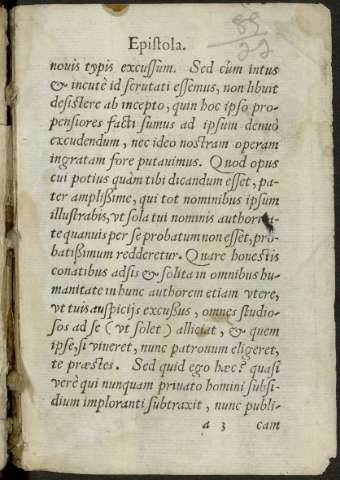 Epistola.
nouis typis excussum. Sed cùm intus
& in cutè id scrutati essemus, non libuit
desistere ab incepto, quin hoc ipso pro-
pensiores facti sumus ad ipsum denuò
excudendum, nec ideo nostram operam
ingratam fore putauimus. Quod opus
cui potius quàm tibi dicandum esset, pa-
ter amplissime, qui tot nominibus ipsum
illustrabis, vt sola tui nominis authorita-
te quanuis per se probatum non esset, pro-
batissimum redderetur. Quare honestis
conatibus adsis & solita in omnibus hu-
manitate in hunc authorem etiam vtere,
vt tuis auspicijs excussus, omnes studio-
sos ad se (vt solet) alliciat, & quem
ipse, si viueret, nunc patronum eligeret,
te præstes. Sed quid ego hæc? quasi
verè qui nunquam priuato homini subsi-
dium imploranti subtraxit, nunc publi-
a 3 cam